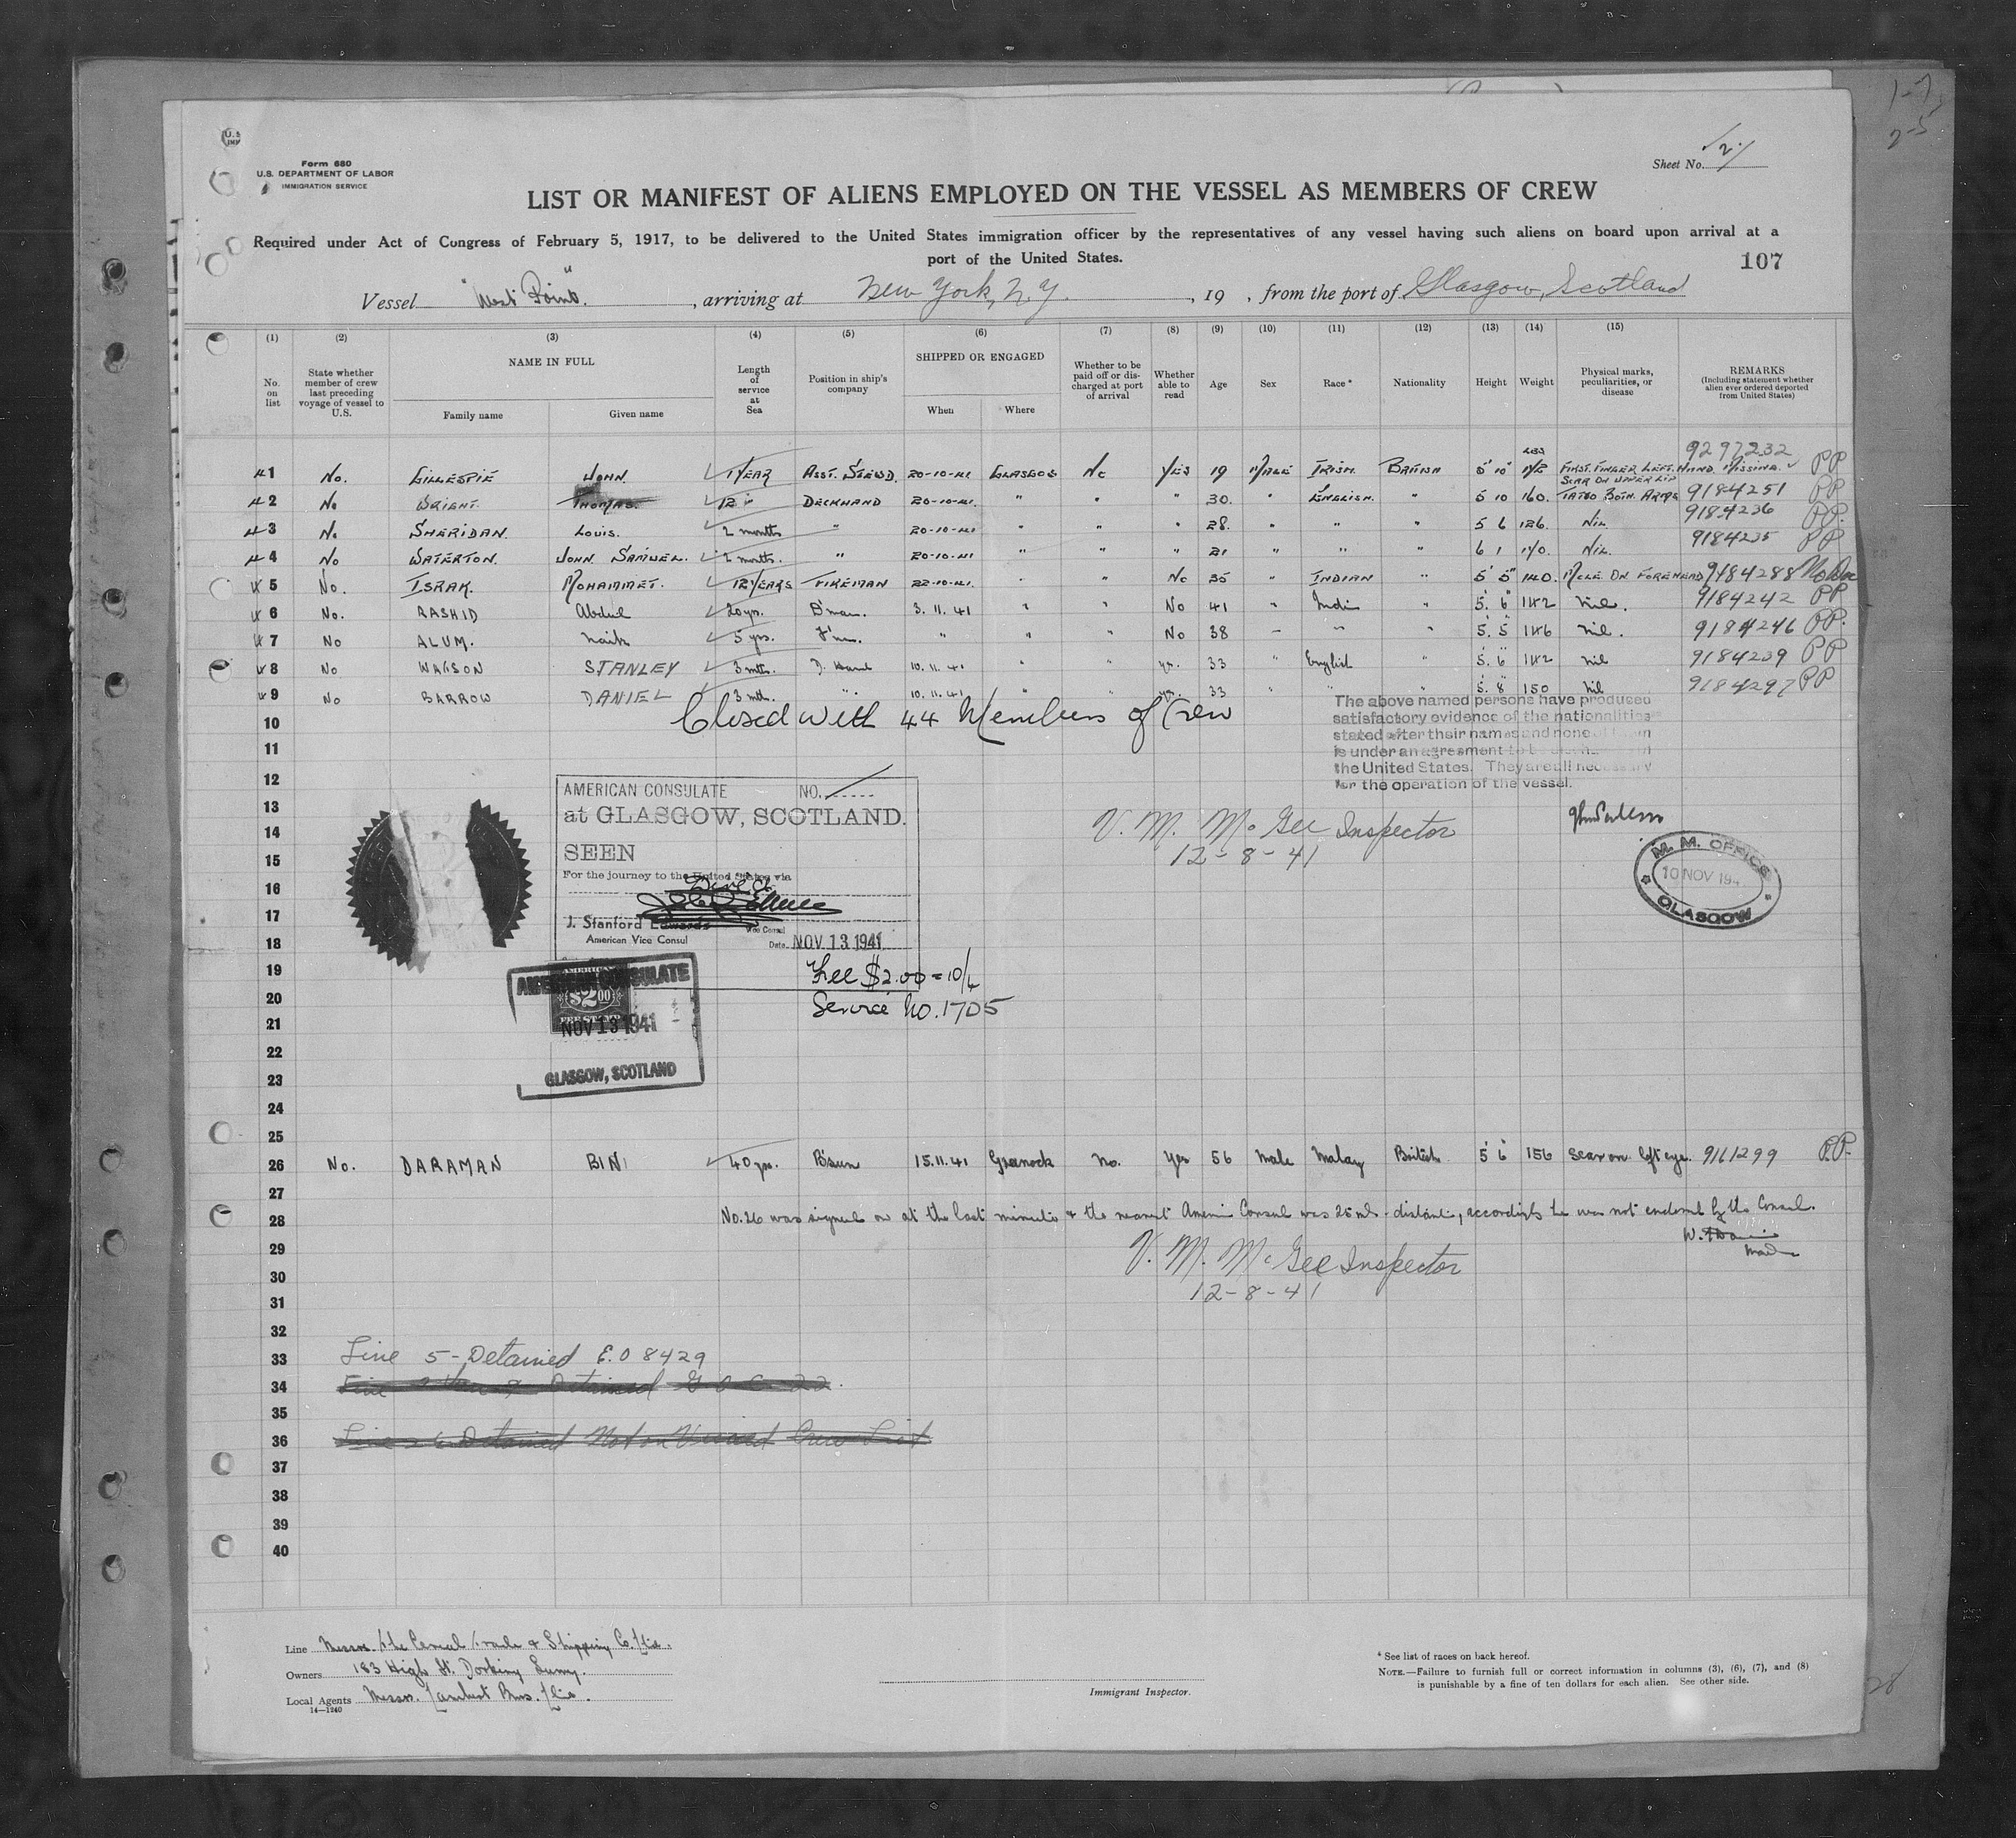 1-7
2-5
Form 680
U.S. DEPARTMENT OF LABOR
IMMIGRATION SERVICE
Sheet No. 2
LIST OR MANIFEST OF ALIENS EMPLOYED ON THE VESSEL AS MEMBERS OF CREW
Required under Act of Congress of February 5, 1917, to be delivered to the United States immigration officer by the representatives of any vessel having such aliens on board upon arrival at a
port of the United States.
107
Vessel "West Point", arriving at New York, N.Y., 19 , from the port of Glasgow, Scotland
(1) (2) (3) (4) (5) (6) (7) (8) (9) (10) (11) (12) (13) (14) (15)
No. on list
State whether member of crew last preceding voyage of vessel to U.S.
NAME IN FULL
Family name
Given name
Length of service at Sea
Position in ship's company
SHIPPED OR ENGAGED
When
Where
Whether to be paid off or discharged at port of arrival
Whether able to read
Age
Sex
Race*
Nationality
Height
Weight
Physical marks, peculiarities, or disease
REMARKS
(Including statement whether alien ever ordered deported from United States)
1 No. GILLESPIE JOHN. 1 YEAR ASST. STEWD. 20-10-41 GLASGOW No YES 19 MALE IRISH. BRITISH 5' 10" FIRST FINGER LEFT HAND MISSING. SCAR ON UPPER LIP 9297232 PP
2 No WRIGHT THOMAS. 12 " DECKHAND 20-10-41. " " " 30. " ENGLISH. " 5 10 160. TATOO BOTH ARMS 9184251 PP
3 No SHERIDAN. LOUIS. 2 months " 20-10-41 " " " 28. " " " 5 6 126. NIL 9184236 PP.
4 No WATERTON. JOHN SAMUEL. 2 months. " 20-10-41 " " " 21 " " " 6 1 170. NIL. 9184235 PP
5 No. ISRAK. MOHAMMET. 12 YEARS FIREMAN 22-10-41. " " No 35 " INDIAN " 5' 5" 140. MOLE ON FOREHEAD 9484288 No Doc
6 No. RASHID Abdul 20 yrs. D'man. 3. 11. 41 " " No 41 " India " 5. 6 142 nil. 9184242 PP
7 No ALUM. Naik 5 yrs. F'm. " " " No 38 - " " 5. 5 146 nil. 9184246 PP.
8 No WATSON STANLEY 3 mths. D. Hand 10. 11. 41 " " yes. 33 " English " 5. 6 142 nil 9184239 PP
9 No BARROW DANIEL 3 mth. " 10. 11. 41 " " yes. 33 " " " 5. 8 150 nil 9184297 PP
Closed with 44 Members of Crew
The above named persons have produced
satisfactory evidence of the nationalities
stated after their names and none of them
is under an agreement to be
the United States. They are all necessary
for the operation of the vessel.
10
11
12
13
14
15
16
17
18
19
20
21
22
23
24
25
AMERICAN CONSULATE NO.
at GLASGOW, SCOTLAND.
SEEN
For the journey to the United States via
J. Stanford Edwards
American Vice Consul
Vice Consul
Date NOV 13 1941
V. M. McGee Inspector
12-8-41
M. M. OFFICE
10 NOV 194
GLASGOW
Fee $2.00 = 10/4
Service No. 1705
AMERICAN CONSULATE
$2.00
FEE STAMP
NOV 13 1941
GLASGOW, SCOTLAND
26 No. DARAMAN BIN 40 yrs. B'sun 15.11.41 Greenock No. Yes 56 Male Malay British 5 6 156 Scar on left eye. 9161299 P.P.
27
28 No. 26 was signed on at the last minute & the nearest American Consul was 25 mls distant, accordingly he was not endorsed by the Consul.
29
V. M. McGee Inspector
30
12-8-41
31
32
33 Line 5 - Detained E.O 8429
34
35
36 Line 26 Detained Not on Visaed Crew List
37
38
39
40
Line Messrs. The Cereal Trade & Shipping Co. Ltd.
Owners 183 High St. Dorking Surrey.
Local Agents Messrs. Lambert Bros. Ltd.
14—1240
Immigrant Inspector.
* See list of races on back hereof.
NOTE.—Failure to furnish full or correct information in columns (3), (6), (7), and (8)
is punishable by a fine of ten dollars for each alien. See other side.
28